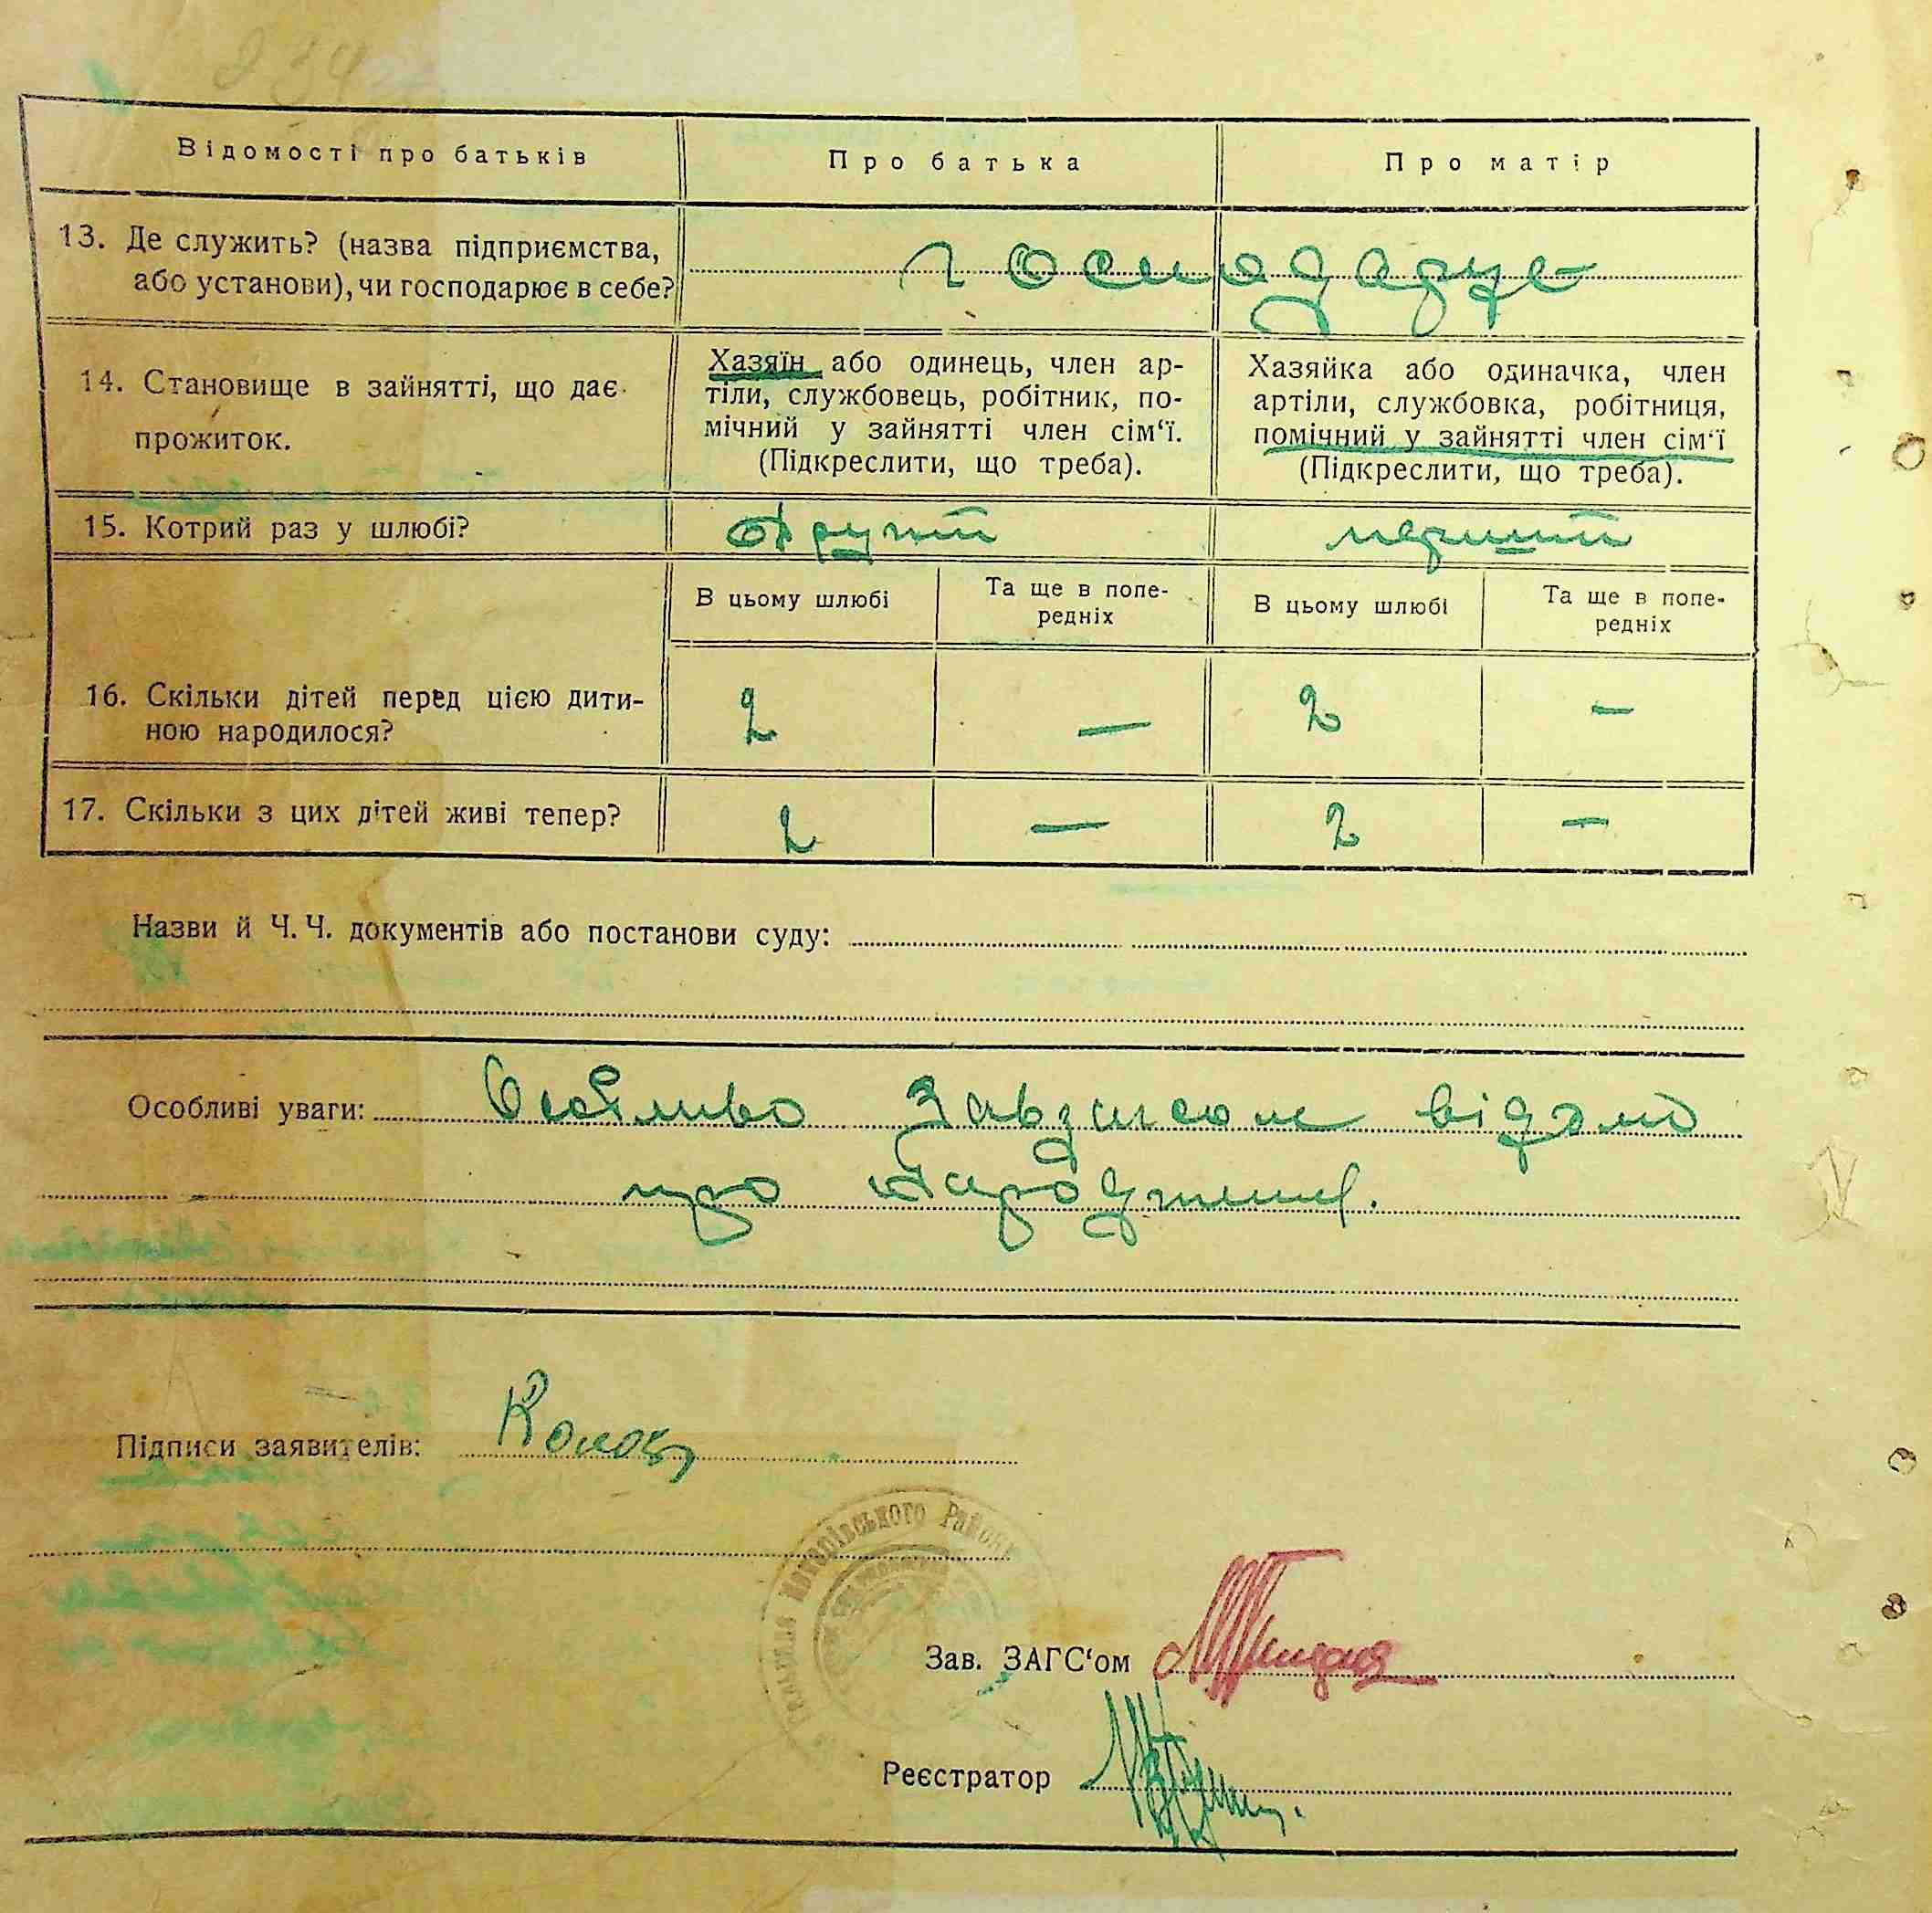 234
Відомості про батьків
Про батька
Про матір
13. Де служить? (назва підприємства,
або установи), чи господарює в себе?
господарує
14. Становище в зайнятті, що дає
прожиток.
Хазяїн або одинець, член ар-
тіли, службовець, робітник, по-
мічний у зайнятті член сім‘ї.
(Підкреслити, що треба).
Хазяйка або одиначка, член
артіли, службовка, робітниця,
помічний у зайнятті член сім‘ї
(Підкреслити, що треба).
15. Котрий раз у шлюбі?
другий
перший
В цьому шлюбі
Та ще в попе-
редніх
В цьому шлюбі
Та ще в попе-
редніх
16. Скільки дітей перед цією дити-
ною народилося?
2 — 2 —
17. Скільки з цих дітей живі тепер?
2 — 2 —
Назви й Ч. Ч. документів або постанови суду:
Особливі уваги: Особливо Завзагсом відомо
про народження.
Підписи заявителів:
Района
Зав. ЗАГС‘ом
Реєстратор